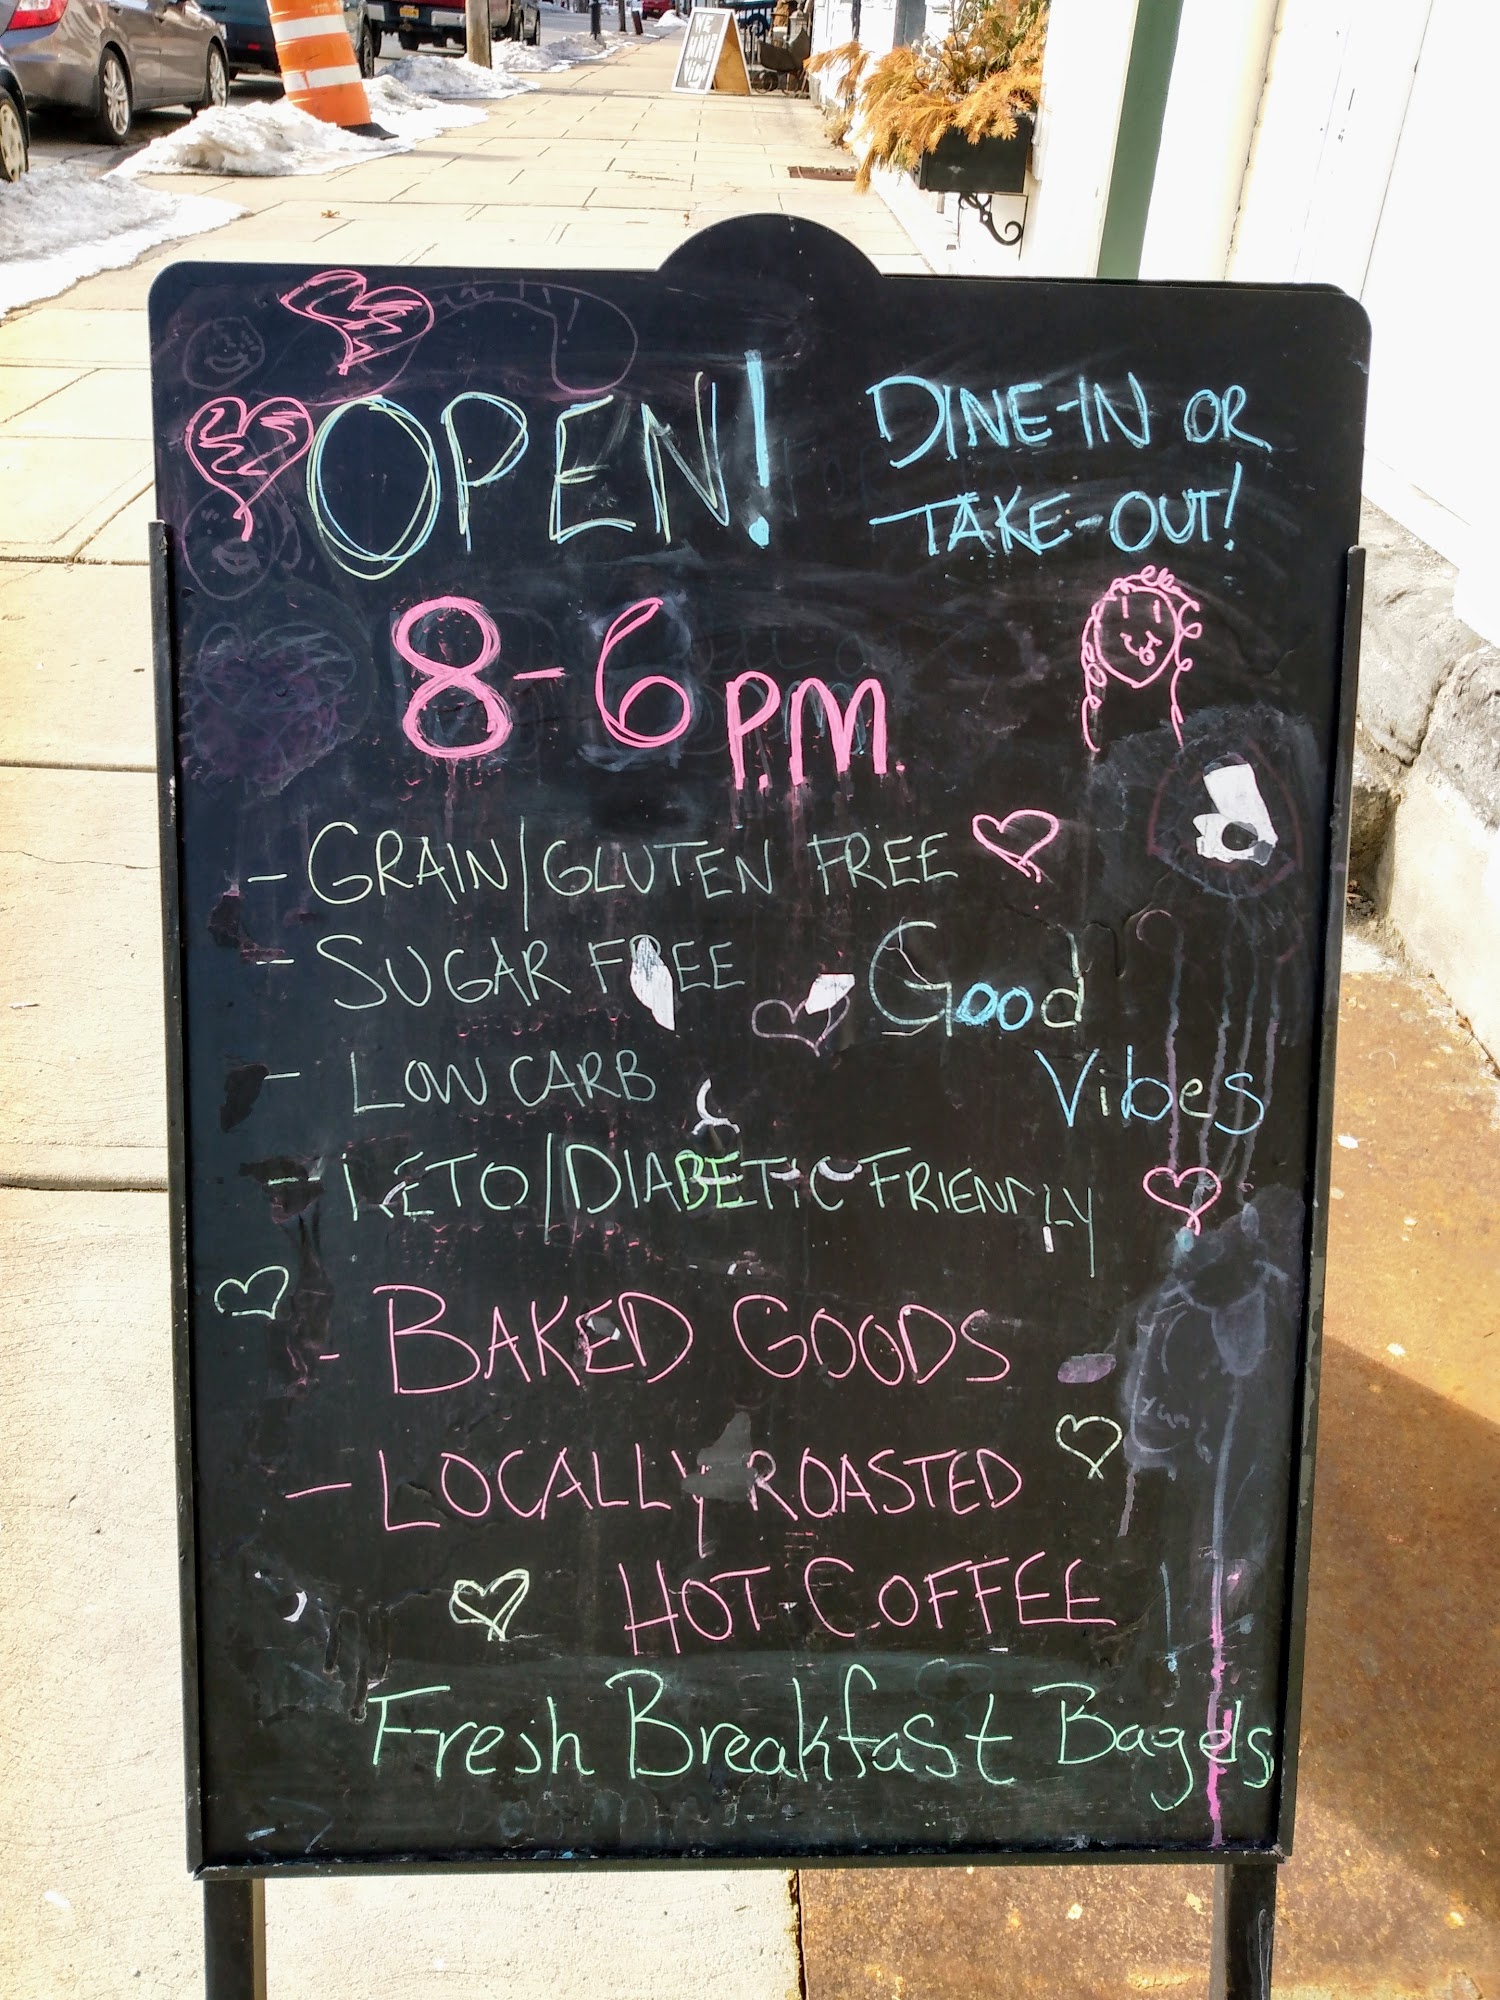 WE
HAVE
VINYL
OPEN!
DINE-IN OR
TAKE-OUT!
8-6 P.M.
- GRAIN/GLUTEN FREE
- SUGAR FREE
Good
Vibes
- LOW CARB
- KETO/DIABETIC FRIENDLY
- BAKED GOODS
- LOCALLY ROASTED
HOT COFFEE
Fresh Breakfast Bagels